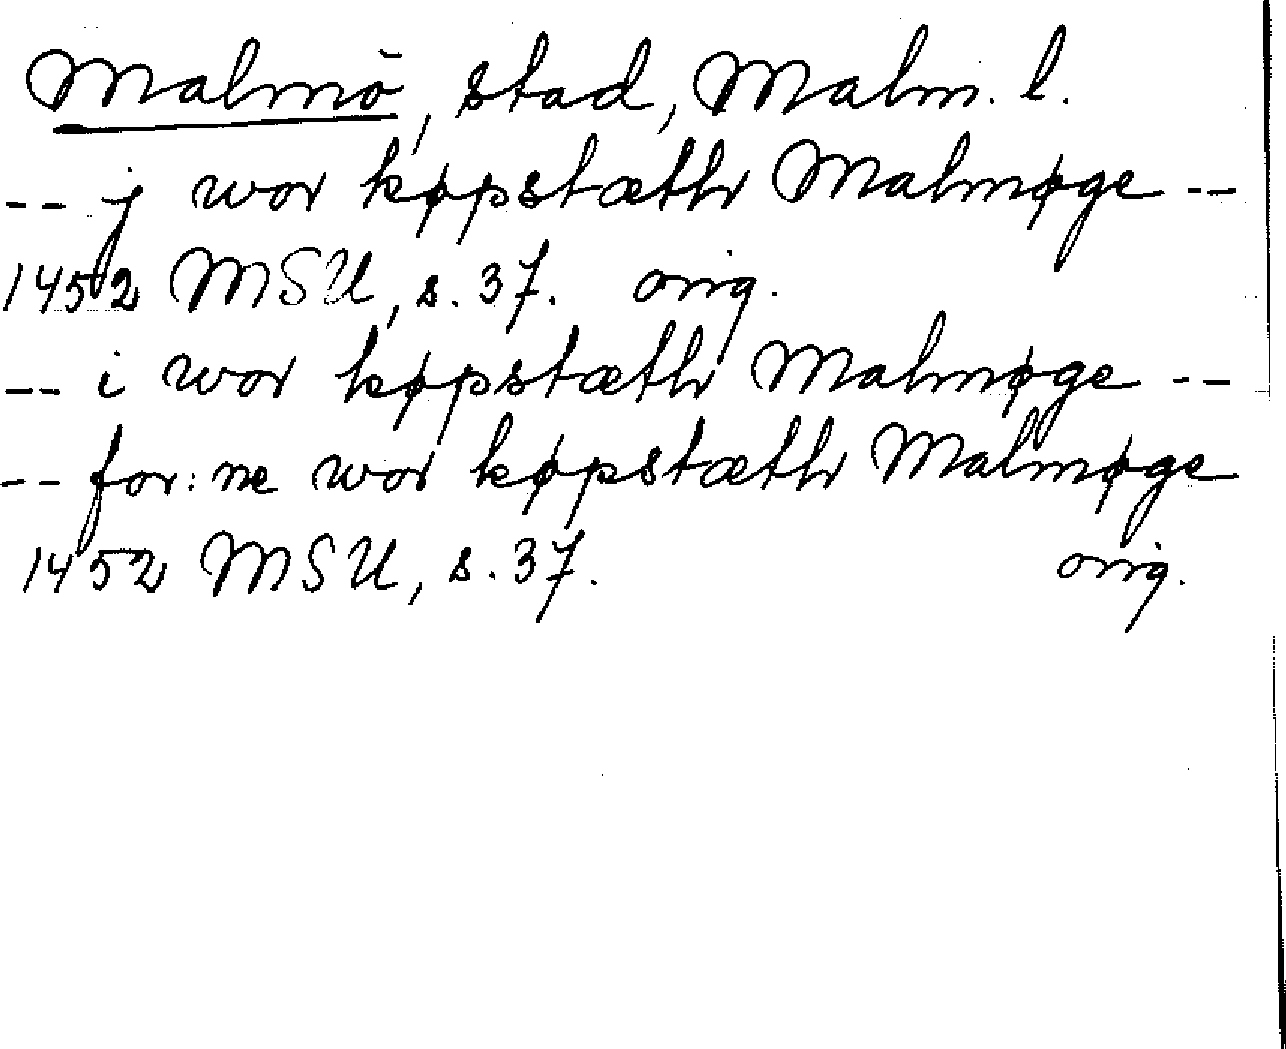 Malmö, stad, Malm. l.
-- j wor køpstæth Malmøge --
1452 MSU, s. 37. orig.
-- i wor køpstæth Malmøge --
-- for: ne wor køpstæth Malmøge
1452 MSU, s. 37. orig.